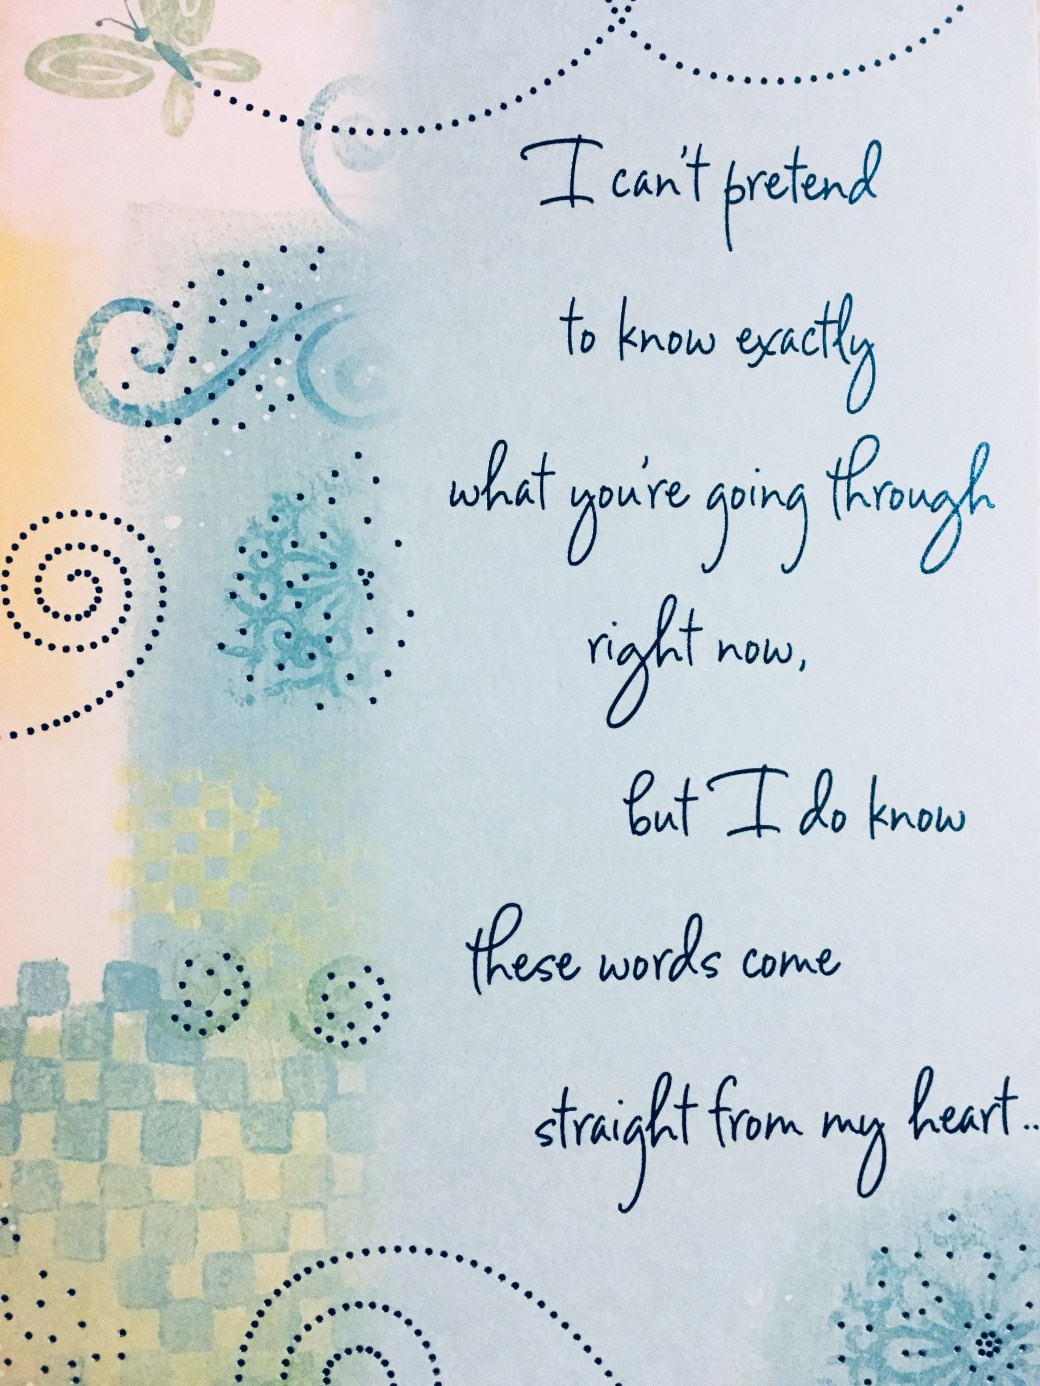 I can't pretend
to know exactly
what you're going through
right now,
but I do know
these words come
straight from my heart..